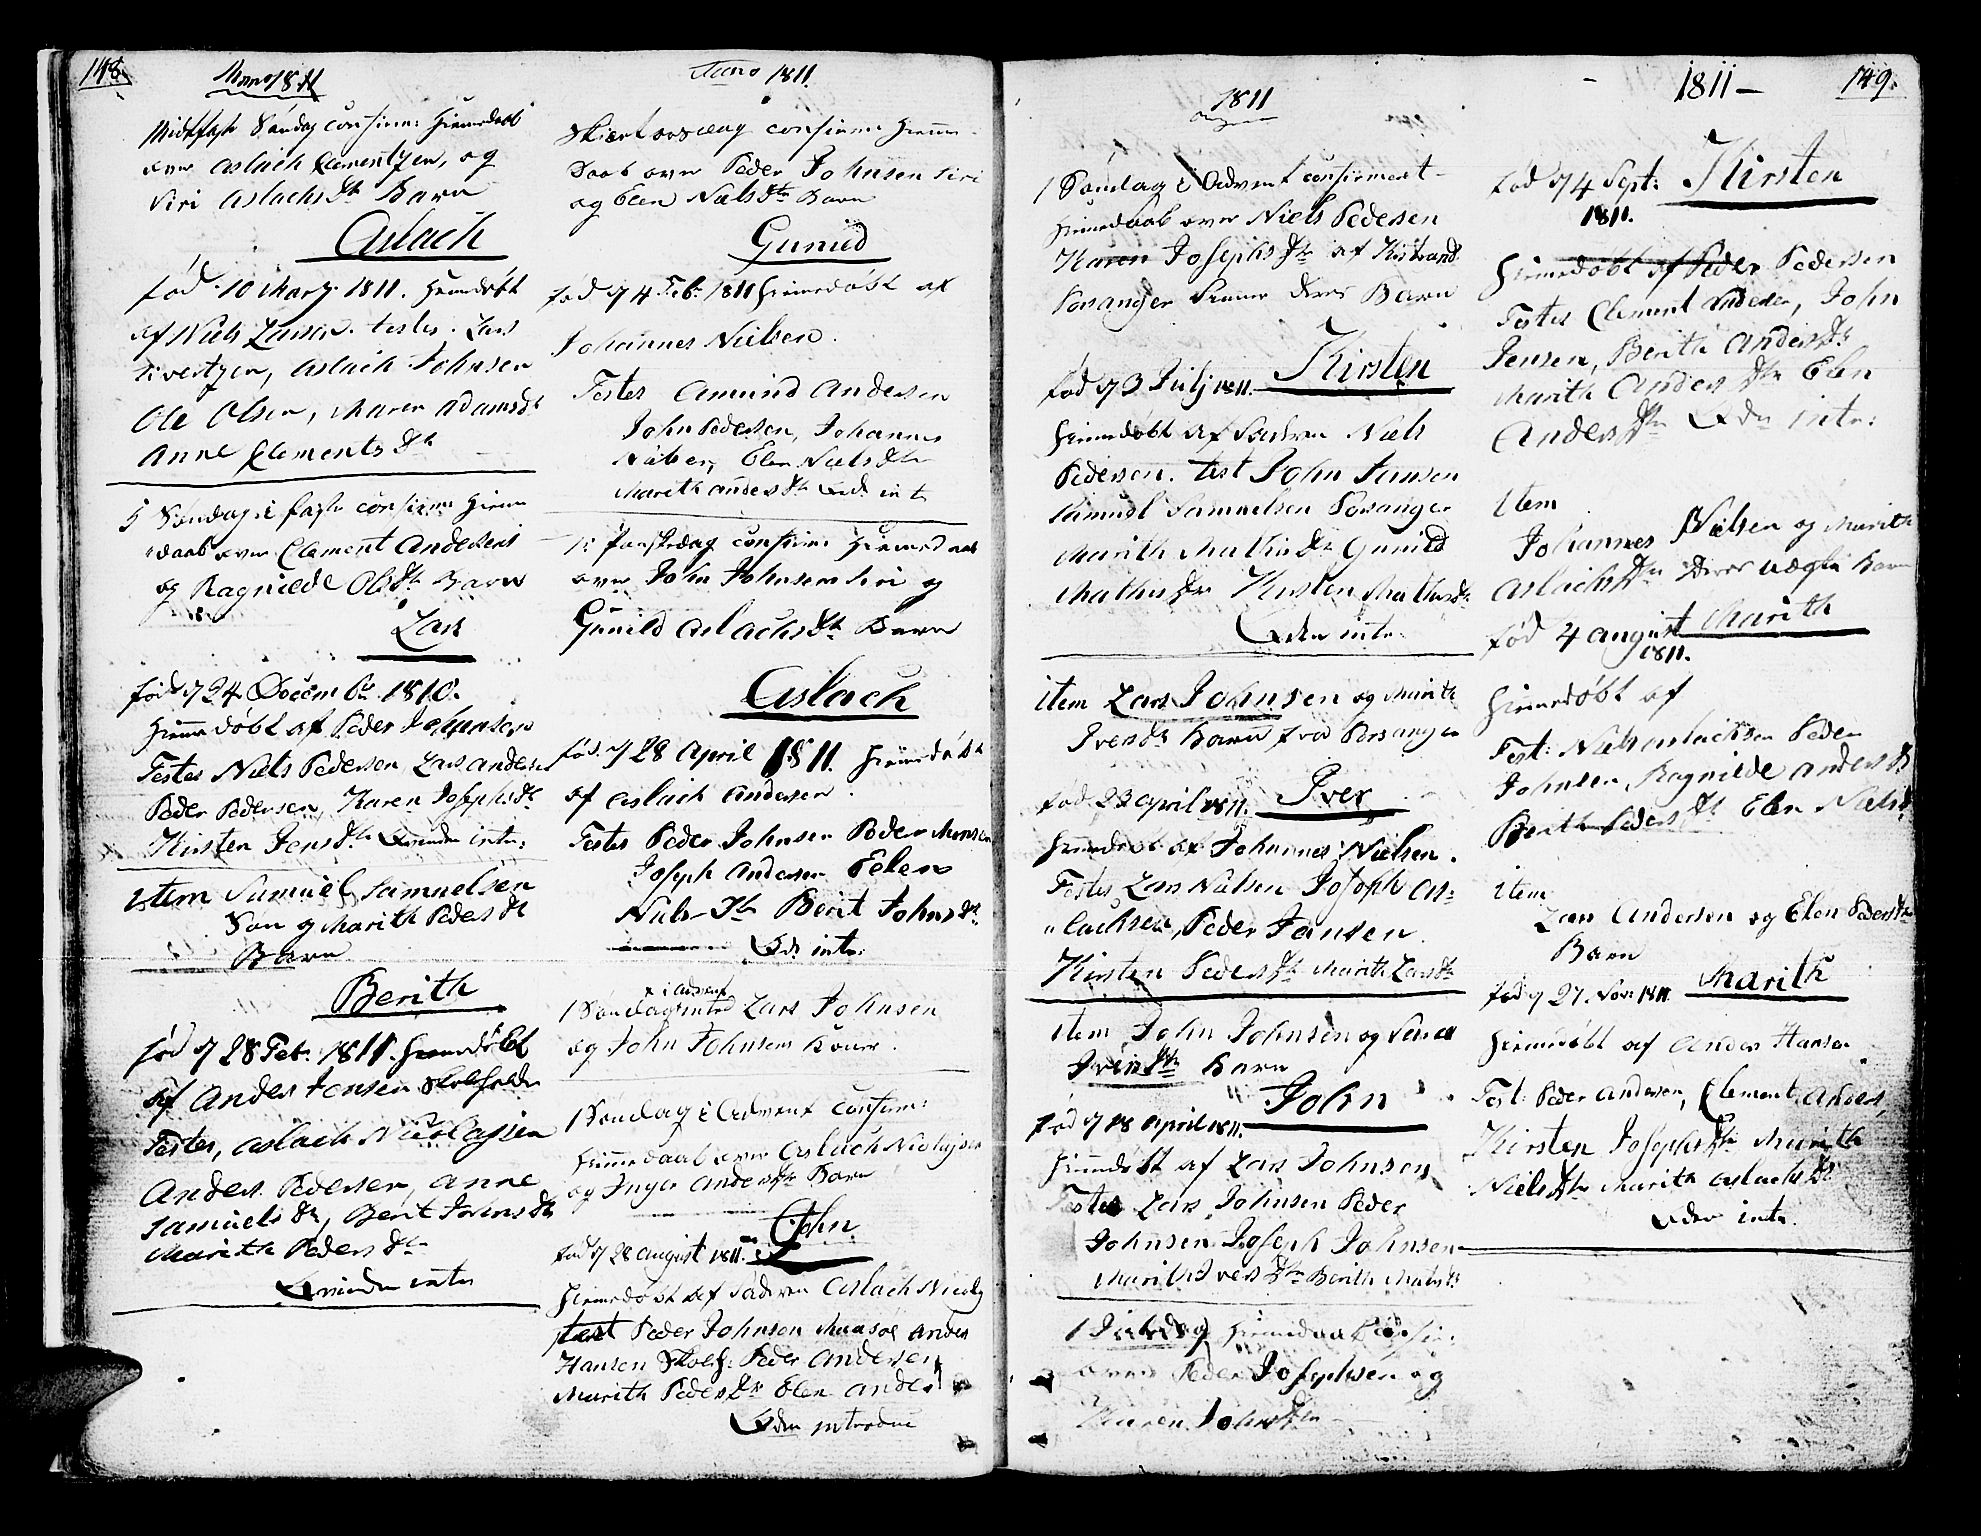 148.
Anno 1811
Midtfaste Søndag confirm: Hiemedaab
over Aslach Clementzen, og
Siri Aslachs Dtr Barn
Aslach
fød 10 Martz 1811. Hiemdøbt
af Niels Larsen. testes. Lars
Sivertzen, Aslach Johnsen
Ole Olsen, Maren Adamsdtr
Anne Clements Dtr
5 Søndag i faste confirm Hieme
daab over Clement Andersens
og Ragnilde Ols Dtr Barn
Lars
fød d 24 Decembr 1810.
Hiemedøbt af Peder Johnsen
Testes Niels Pedersen Lars Andersen
Peder Pedersen, Karen Josephs Dtr
Kirsten Jens Dtr intr:
item Samuel Samuelsen
Søn og Marith Peders Dtr
Barn
Berith
fød d 28 Feb: 1811. Hiemedøbt
af Anders Jensen Skoleholder
Testes, Aslach Nicolaysen
Anders Pedersen, Anne
Samuels Dr, Berit Johns Dr
Marith Peders Dtr
intr
Anno 1811.
Skiertorsdag confirm Hieme-
daab over Peder Johnsen Siri
og Elen Niels Dtr Barn
Gunild
fød d 4 Feb: 1811 Hiemedøbt af
Johannes Nielsen.
Testes Amund Andersen
John Pedersen, Johannes
Elen Niels Dtr
Marith Anders Dtr int
1: Paaskedag confirm Hiemedaab
over John Johnsens Siri og
Gunild Aslachs Dtr Barn
Aslach
fød d 28 April 1811. Hiemedøbt
af Aslach Andersen.
Testes Peder Johnsen Peder Monsen
Joseph Andersen Eelen
Niels Dtr Berit Johns Dtr
intr:
x i Advent
1 Søndag intrd Lars Johnsen
og John Johnsens Koner.
1 Søndag i Advent confirm:
Hiemedaab over Aslach Nicolaysen
og Inger Anders Dtr Barn
John
fød d 28 August 1811.
Hiemedøbt af Faderen Aslach Nicolay
test Peder Johnsen Maasøe Anders
Hansen Skoleh: Peder Andersen
Marith Peders Dtr Elen Anders
introduc
1811
1 Søndag i Advent confirmert
Hiemedaab over Niels Pedersen
Karen Josephs Dtr af Kistrand
Porsanger deres Barn
Kirsten
fød d 3 Julj 1811.
Hiemedøbt af Faderen Niels
Pedersen. test John Jansen
Samuel Samuelsen Porsanger
Marith Mathis Dtr Gunild
Mathis Dtr Kirsten Mathis Dtr
intr.
item Lars Johnsen og Marith
Ivers Dr Barn fra Porsanger
Iver
fød 23 April 1811.
Hiemedøbt af Johannes Nielsen.
Testes Lars Nielsen Joseph As-
lachsen, Peder Jansen.
Kirsten Peders Dtr Marith Lars Dtr
item John Johnsen og
Ivers Dtr Barn
John
fød d 18 April 1811.
Hiemedøbt af Lars Johnsen
Testes Lars Johnsen Peder
Johnsen Joseph Johnsen
Marith Ivers Dtr Berith Niels Dr
1 Juledag Hiemedaab confir:
over Peder Josephsen og
Karen Johns Dtr
1811 -
149.
fød d 4 Sept: Kirsten
1811.
Hiemedøbt af Peder Pedersen
Testes Clement Andersen, John
Jensen, Berith Anders Dtr
Marith Anders Dtr Elen
Anders Dtr intr:
item
Johannes Nielsen og Marith
Aslachs Dtr Deres uægte Barn
fød 4 August Marith
1811.
Hiemedøbt af
Test: Niels Aslachsen Peder
Johnsen, Ragnilde Anders Dr
Berith Peders Dtr Elen Niels Dr
item
Lars Andersen og Elen Peders Dtr
Barn
fød d 27. Nov: 1811 Marith
Hiemedøbt af Anders Hansen
Test: Peder Andersen, Clement Anders,
Kirsten Josephs Dtr Marith
Niels Dtr Marith Aslachs Dtr
intr.